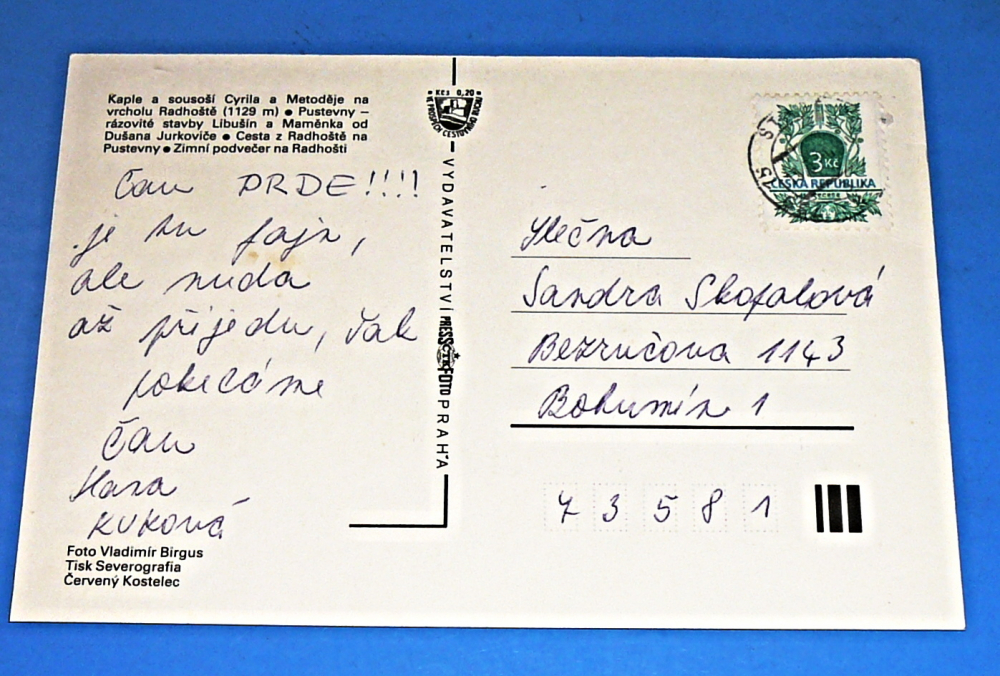 Kaple a sousoší Cyrila a Metoděje na
vrcholu Radhoště (1129 m) ● Pustevny –
rázovité stavby Libušín a Maměnka od
Dušana Jurkoviče ● Cesta z Radhoště na
Pustevny ● Zimní podvečer na Radhošti
Čau PRDE!!!!
je tu fajn,
ale nuda
až přijedu, tak
pokecáme
Čau
Hana
KUKOVÁ
Foto Vladimír Birgus
Tisk Severografia
Červený Kostelec
Kčs 0,20
VE PROSPĚCH CESTOVNÍHO RUCHU
VYDAVATELSTVÍ PRESSFOTO PRAHA
ČTK
3 Kč
ČESKA REPUBLIKA
Slečna
Sandra
Bezručova 1143
Bohumín 1
7 3 5 8 1